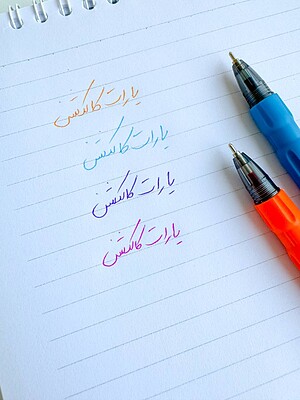 یارات کالکشن
یارات کالکشن
یارات کالکشن
یارات کالکشن